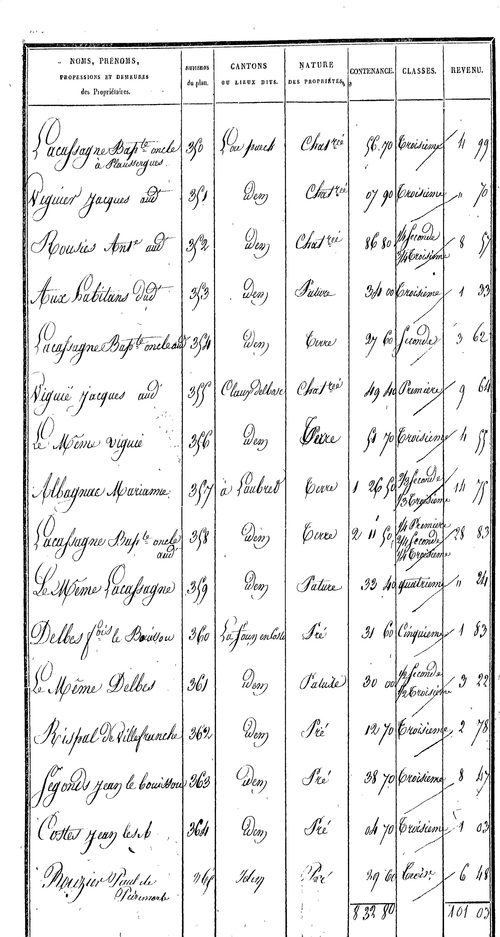 NOMS, PRÉNOMS, PROFESSIONS ET DEMEURES des Propriétaires. NUMÉROS du plan. CANTONS OU LIEUX DITS. NATURE DES PROPRIÉTÉS. CONTENANCE. CLASSES. REVENU.
Lacassagne Bapte oncle à Plaussergues 350 Lou puech Chatrée 56 70 Troisieme 4 99
Viguier Jacques aud 351 idem Chatrée 07 90 Troisieme " 70
Rousies Antne aud 352 idem Chatrée 86 80 1/2 Seconde 1/2 Troisieme 8 57
Aux habitans dud 353 idem Pature 34 00 Troisieme 1 33
Lacassagne Bapte oncle aud 354 idem Terre 27 60 Seconde 3 62
Viguié Jacques aud 355 Chatrée 49 40 Premiere 9 64
Le Même Viguié 356 idem Terre 51 70 Troisieme 4 55
Albagnac Marianne 357 à Laubred Terre 1 26 50 2/3 Seconde 1/3 Troisieme 14 75
Lacassagne Bapte oncle aud 358 idem Terre 2 11 50 1/4 Premiere 2/4 Seconde 1/4 Troisieme 28 83
Le Même Lacassagne 359 idem Pature 33 40 quatrieme " 24
Delbes fois le Bouissou 360 Pré 31 60 Cinquieme 1 83
Le Même Delbes 361 idem Pature 30 00 1/2 Seconde 1/2 Troisieme 3 22
Rispal de Villefranche 362 idem Pré 12 70 Troisieme 2 78
Segonds Jean le bouissou 363 idem Pré 38 70 Troisieme 8 47
Costes Jean 364 idem Pré 04 70 Troisieme 1 03
Rouzier Paul de 365 Idem Pré 29 60 Troise 6 48
8 32 80 101 03